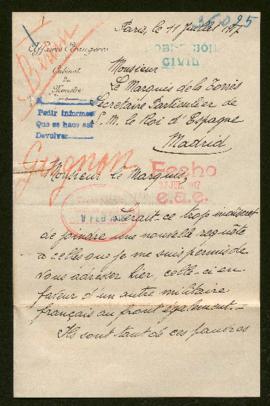 Paris, le 11 Juillet 1917
Affaires Etrangères
Cabinet
du
Ministre
POBLACION
CIVIL
Monsieur
Le Marquis de la Torre
Secretaire Particulier de
S. M. le Roi d'Espagne
Madrid
Pedir informes
Que se haga así
Devolver
Gugnon
Fecho
JUL. 1917
Monsieur le Marquis,
FEB 1918
Serait-ce trop
de joindre une nouvelle requête
à celle que je me suis permis de
vous adresser hier, celle-ci en
faveur d'un autre militaire
français au front également.
Ils sont tant de ces pauvres